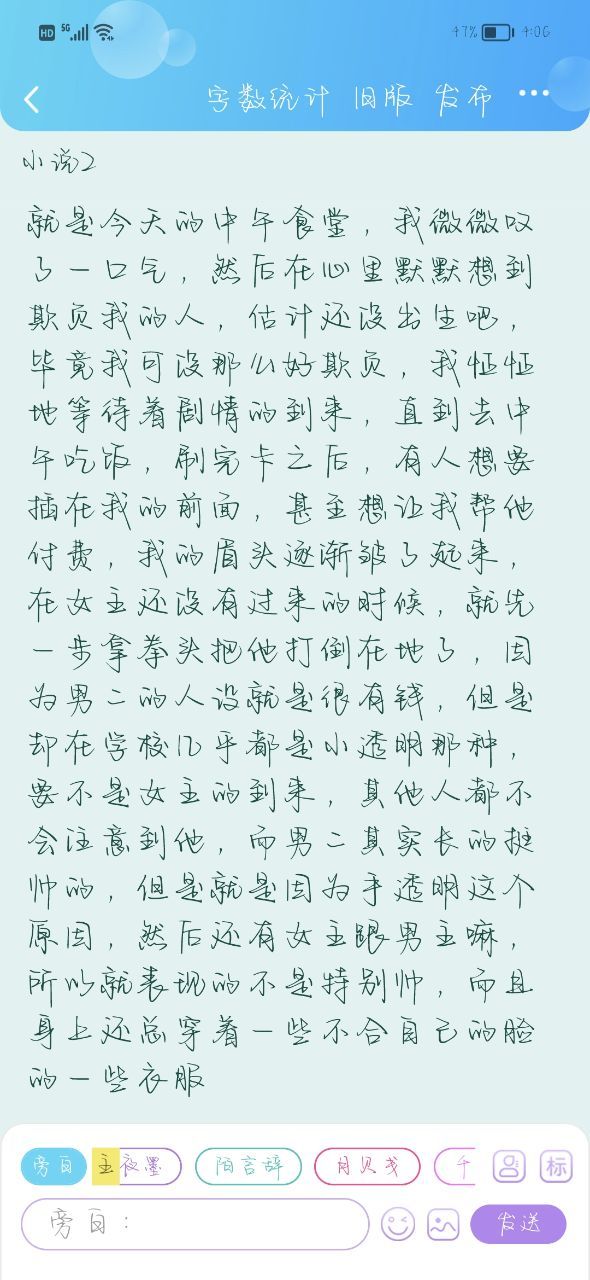 HD 5G 47% 4:06
字数统计 旧版 发布 ...
小说2
就是今天的中午食堂，我微微叹
了一口气，然后在心里默默想到
欺负我的人，估计还没出生吧，
毕竟我可没那么好欺负，我怔怔
地等待着剧情的到来，直到去中
午吃饭，刷完卡之后，有人想要
插在我的前面，甚至想让我帮他
付费，我的眉头逐渐皱了起来，
在女主还没有过来的时候，就先
一步拿拳头把他打倒在地了，因
为男二的人设就是很有钱，但是
却在学校几乎都是小透明那种，
要不是女主的到来，其他人都不
会注意到他，而男二其实长的挺
帅的，但是就是因为手透明这个
原因，然后还有女主跟男主嘛，
所以就表现的不是特别帅，而且
身上还总穿着一些不合自己的脸
的一些衣服
旁白 主 夜墨 陌言辞 千 标
旁白：
发送